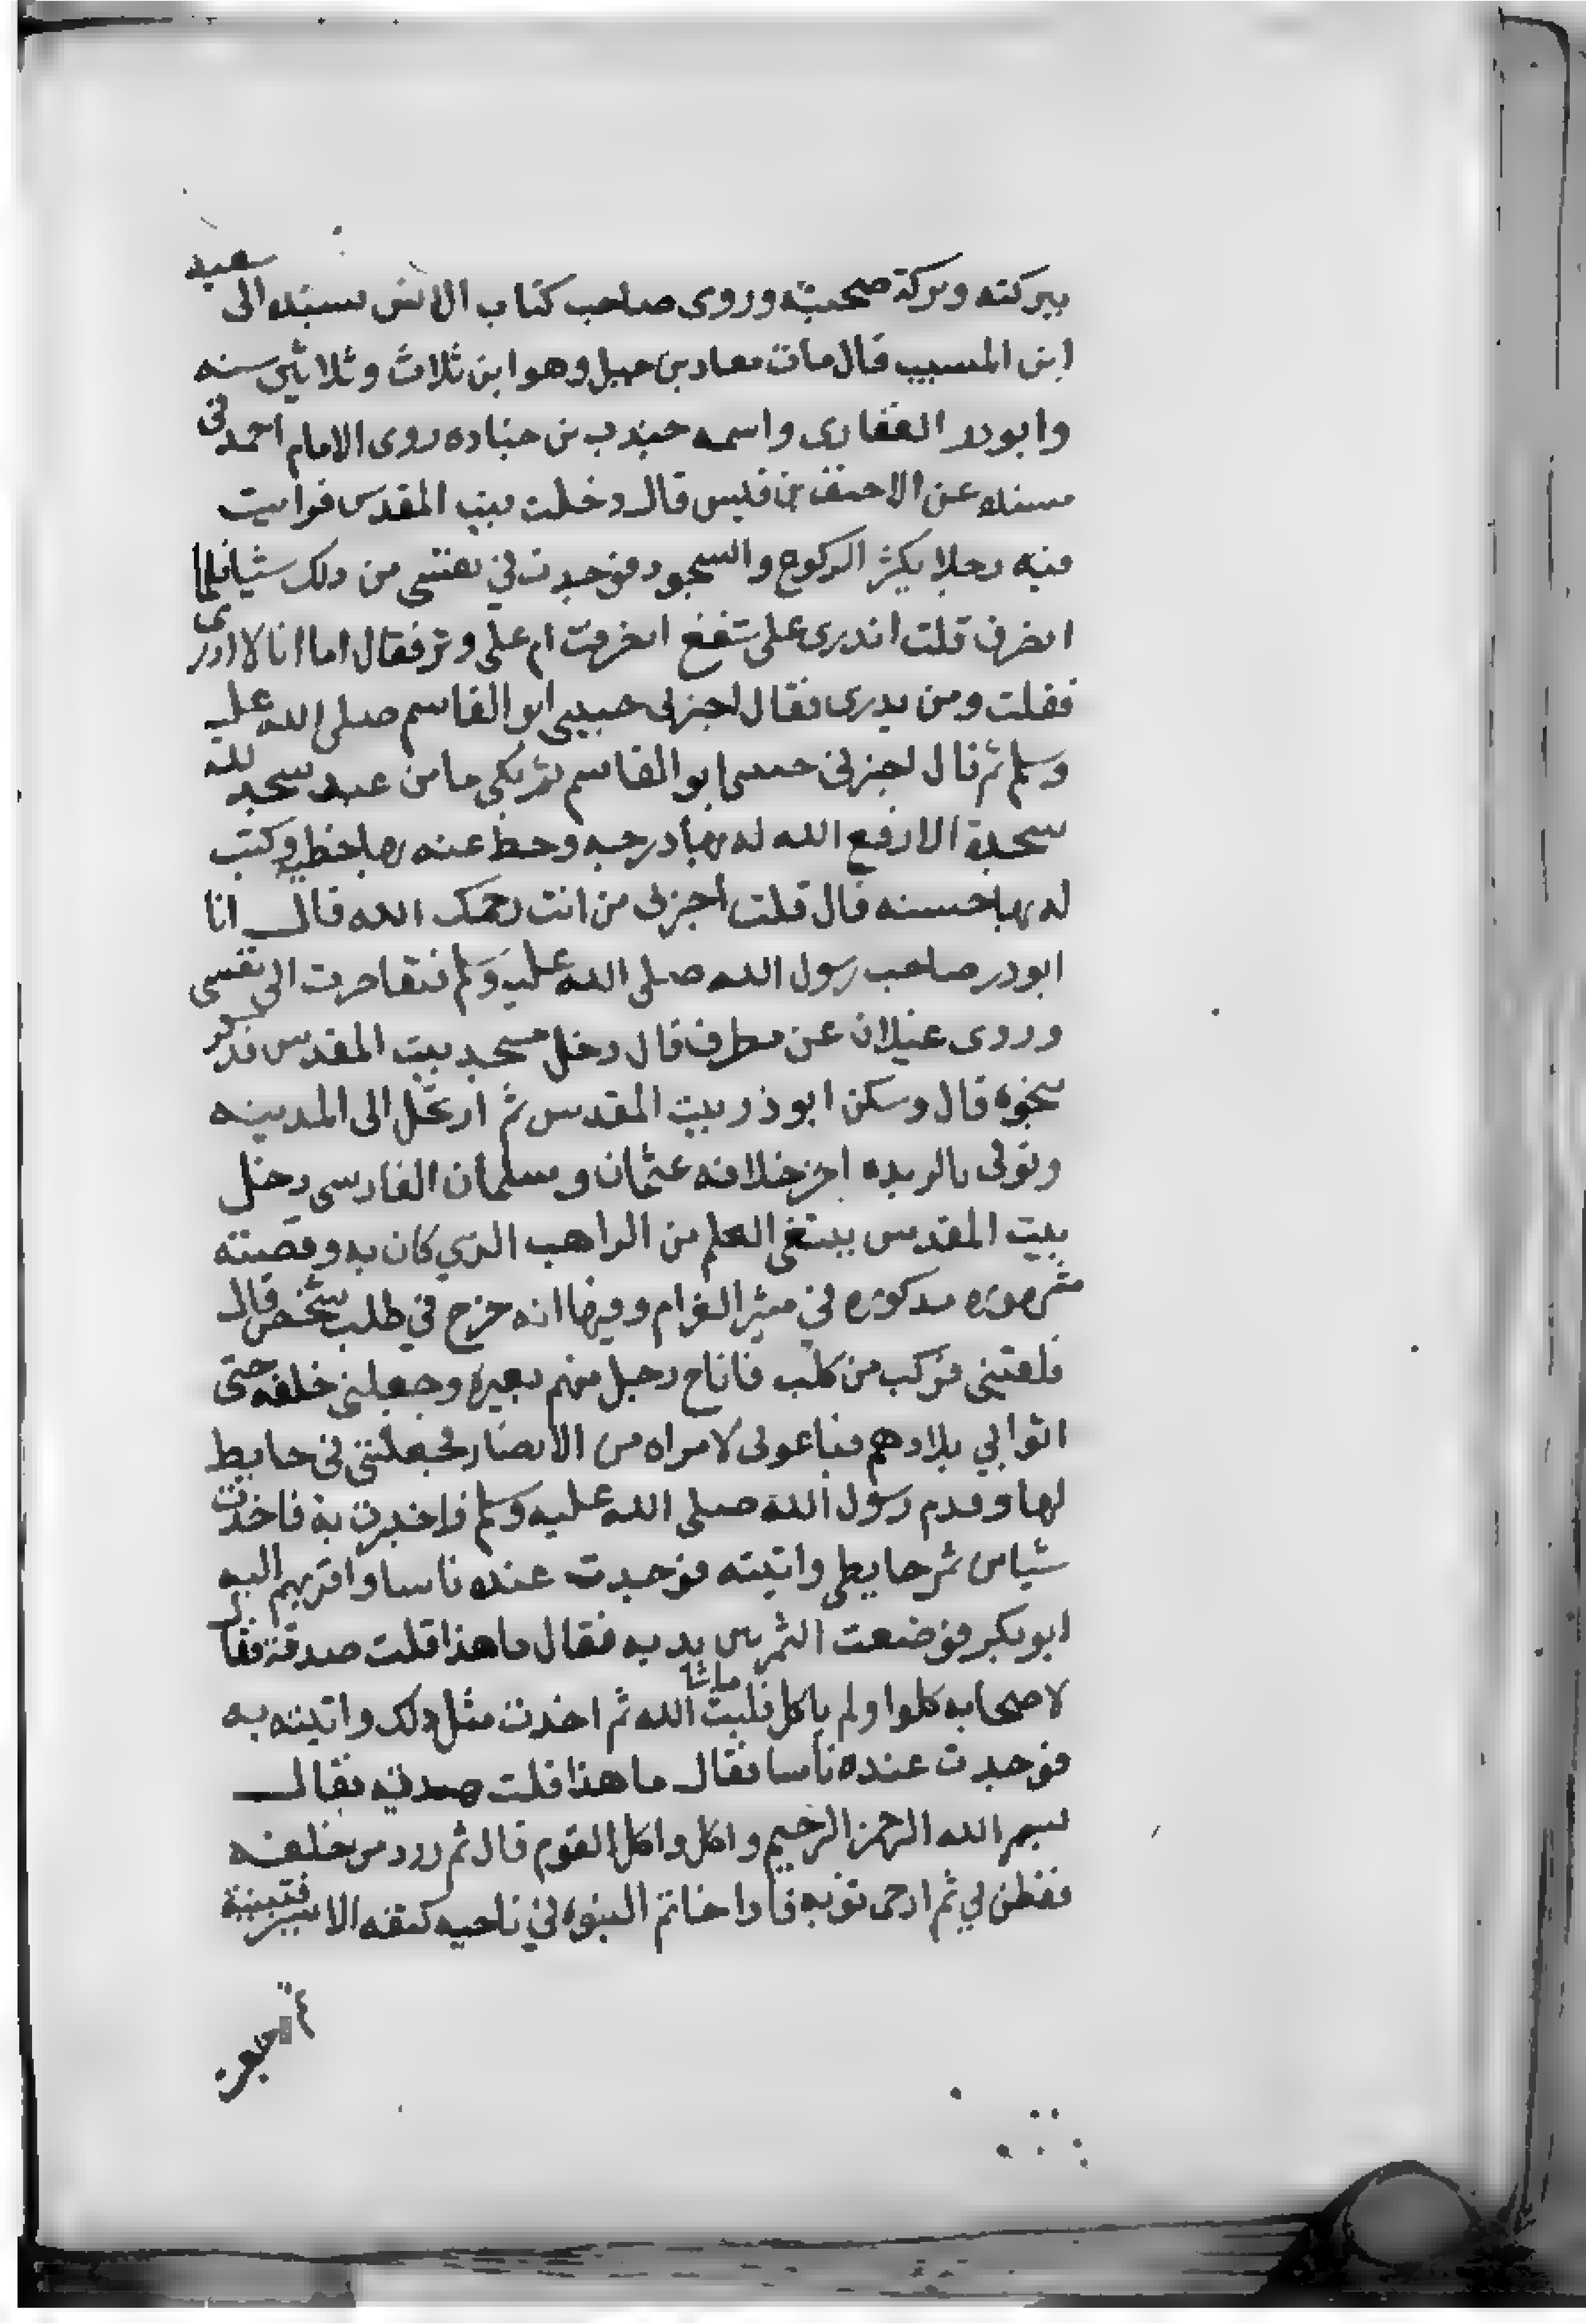 ببركته وبركة صحبته وروى صاحب كتاب الانس بسنده الى سعيد
ابن المسيب قال مات معاد بن جبل وهو ابن ثلاث وثلاثين سنه
وابودر الغفارى واسمه جندب بن جناده روى الامام احمد فى
مسنده عن الاحنف بن قيس قال دخلت بيت المقدس فرايت
فيه رجلا يكثر الركوع والسجود فوجدت في نفسى من دلك شيا فلما
انصرف قلت اتدرى على شفع انصرفت ام على وتر فقال اما انا لا ادرى
فقلت ومن يدرى فقال اخبرنى حبيبى ابو القاسم صلى الله عليه
وسلم ثم قال اخبرنى حبيبى ابو القاسم ثم بكى ما من عبد سجد لله
سجدة الا رفع الله له بها درجه وحط عنه بها خطيه وكتب
له بها حسنه قال قلت اخبرنى من انت رحمك الله قال انا
ابودر صاحب رسول الله صلى الله عليه وسلم فتقاصرت الى نفسى
وروى غيلان عن مطرف قال دخل مسجد بيت المقدس فدكر
نحوه قال وسكن ابو ذر بيت المقدس ثم ارتحل الى المدينه
وتوفى بالربده اخر خلافه عثمان وسلمان الفارسى دخل
بيت المقدس يبتغى العلم من الراهب الذي كان به وقصته
مشهوره مدكوره في مثير الغرام وفيها انه خرج في طلب شخص قال
فلقينى ركب من كلب فاناخ رجل منهم بعيره وجعلنى خلفه حتى
اتوا بي بلادهم فباعونى لامراه من الانصار فجعلتنى فى حايط
لها وقدم رسول الله صلى الله عليه وسلم فاخبرت به فاخذت
شيا من ثمر حايطى واتيته فوجدت عنده ناسا واقربهم اليه
ابو بكر فوضعت التمر بين يديه فقال ما هذا قلت صدقة فقال
لاصحابه كلوا ولم ياكل فلبثت ماشا الله ثم اخذت مثل دلك واتيته به
فوجدت عنده ناسا فقال ما هذا قلت هديه فقال
بسم الله الرحمن الرحيم واكل واكل القوم قال ثم درت من خلفه
ففطن لي ثم ارخى توبه فادا خاتم النبوه في ناحيه كتفه الايسر فتبينته